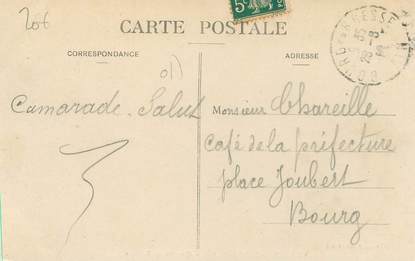 20f
5
CARTE POSTALE
CORRESPONDANCE
ADRESSE
Camarade. Salut
Monsieur Chareille
Café de la préfecture
place Joubert
Bourg